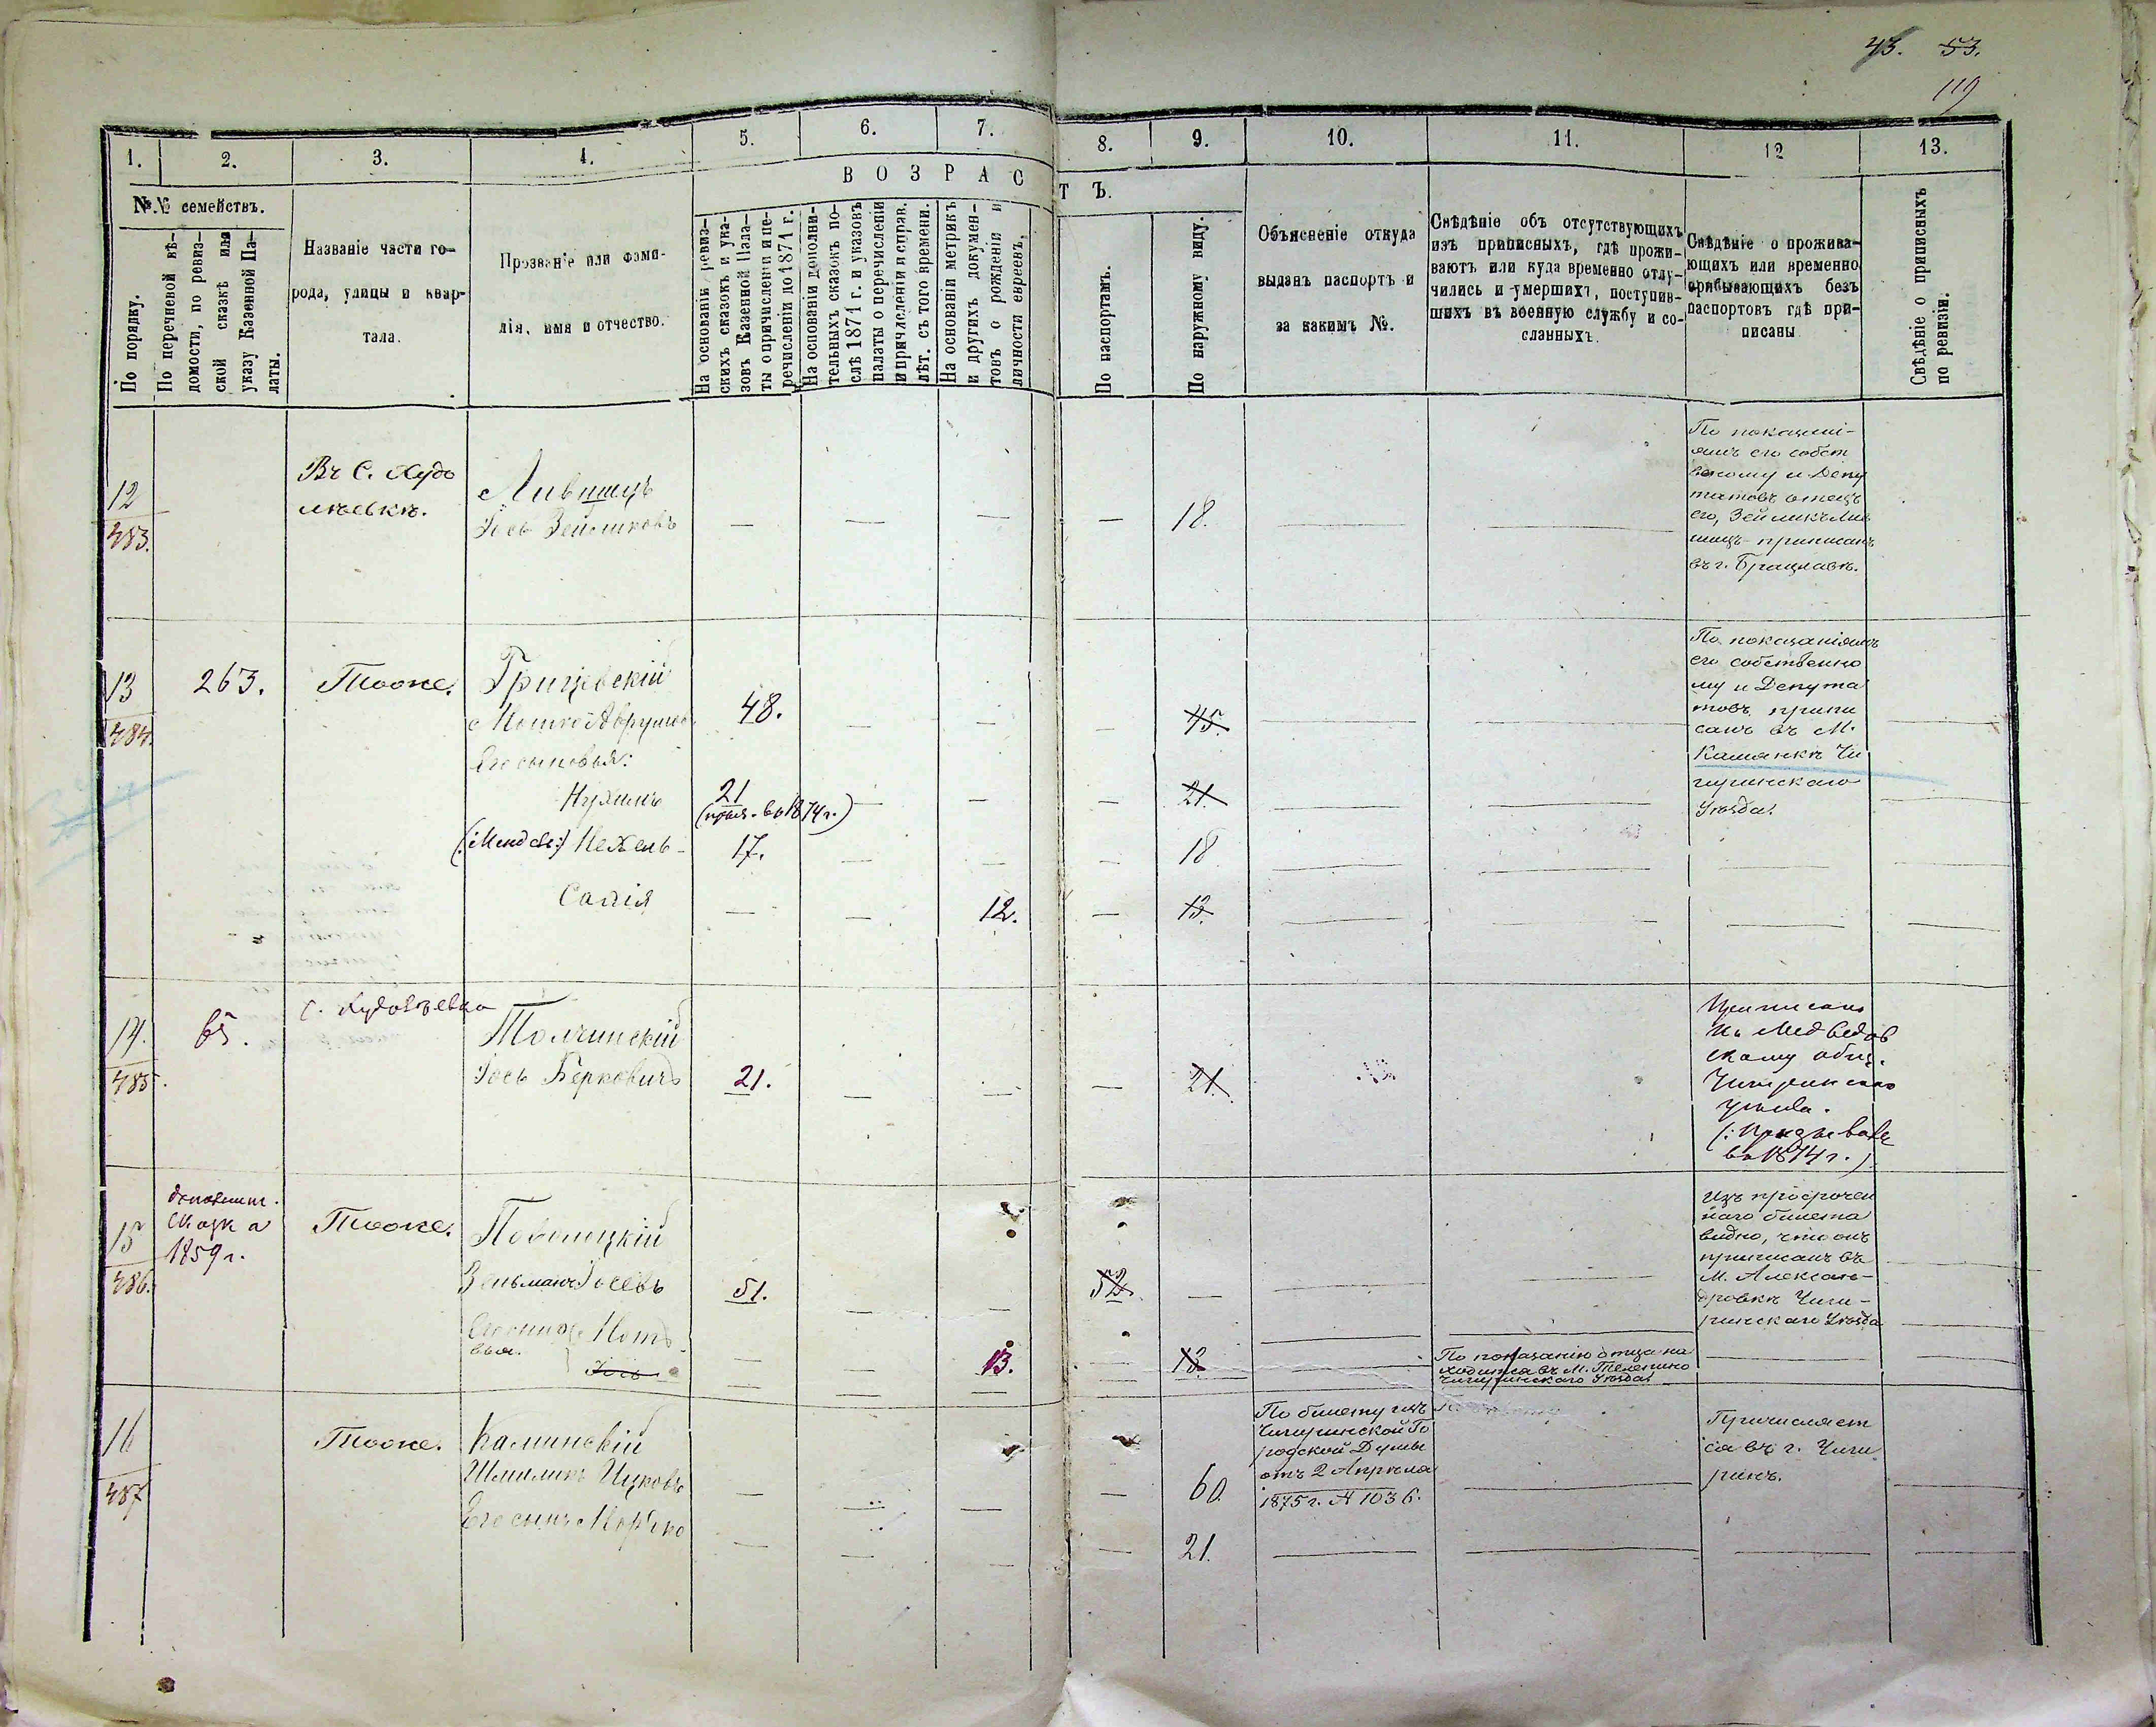 43. 53.
119
1.
2.
3.
4.
5.
6.
7.
8.
9.
10.
11.
12
13.
ВОЗРАСТЪ.
№.№ семействъ.
По порядку.
По перечневой вѣ-
домости, по ревиз-
ской сказкѣ или
указу Казенной Па-
латы.
Названіе части го-
рода, улицы и квар-
тала.
Прозваніе или фами-
лія, имя и отчество.
На основаніи ревиз-
скихъ сказокъ и ука-
зовъ Казенной Пала-
ты о причисленіи и пе-
речисленіи до 1871 г.
На основаніи дополни-
тельныхъ сказокъ по-
слѣ 1871 г. и указовъ
палаты о перечисленіи
и причисленіи и справ.
лѣт. съ того времени.
На основаніи метрикъ
и другихъ докумен-
товъ о рожденіи и
личности евреевъ.
По паспортамъ.
По наружному виду.
Объясненіе откуда
выданъ паспортъ и
за какимъ №.
Свѣдѣніе объ отсутствующихъ
изъ приписныхъ, гдѣ прожи-
ваютъ или куда временно отлу-
чились и умершихъ, поступив-
шихъ въ военную службу и со-
сланныхъ.
Свѣдѣніе о прожива-
ющихъ или временно
прибывающихъ безъ
паспортовъ гдѣ при-
писаны
Свѣдѣніе о приписныхъ
по ревизіи.
12
483.
Въ С. Худо
лѣевкѣ.
Лившицъ
Іось Зейликовъ
18.
По показані-
ямъ его собст
веному и Депу
татовъ отецъ
его, Зейликъ Лив
шицъ приписанъ
въ г. Брацлавѣ.
13
484.
263.
Тоже.
Грицевскій
Мошко Аврумов
Его сыновья:
48.
45.
Нухимъ
21
(призыв. въ 1874 г.)
21
(:Мендель:) Хель
17.
18
Саппія
12.
13.
По показаніямъ
его собственно
му и Депута
товъ припи
санъ въ М.
Камянкѣ Чи
гиринскаго
Уѣзда.
14.
485.
65.
с. Худолѣевка
Толчинскій
Іось Берковичъ
21.
21.
Приписанъ
къ Медведов
скому общ.
Чигиринскаго
уѣзда.
(:Призывался
въ 1874 г.)
15
486.
дополнит.
сказка
1859 г.
Тоже.
Поволоцкій
Зельманъ Іосевъ
51.
52.
Его сыно
вья.
Мотъ
Іось
13.
13.
По показанію отца на
ходится въ М. Телепино
Чигиринскаго Уѣзда.
Изъ просрочен
наго билета
видно, что онъ
приписанъ въ
М. Алексан-
дровкѣ Чиги-
ринскаго Уѣзда
16
487
Тоже.
Каминскій
Шмиликъ Ицковъ
Его сынъ Мордко
60.
21.
По билету изъ
Чигиринской Го
родской Думы
отъ 2 Апрѣля
1875 г. № 1036.
Причисляет
ся въ г. Чиги
ринѣ.